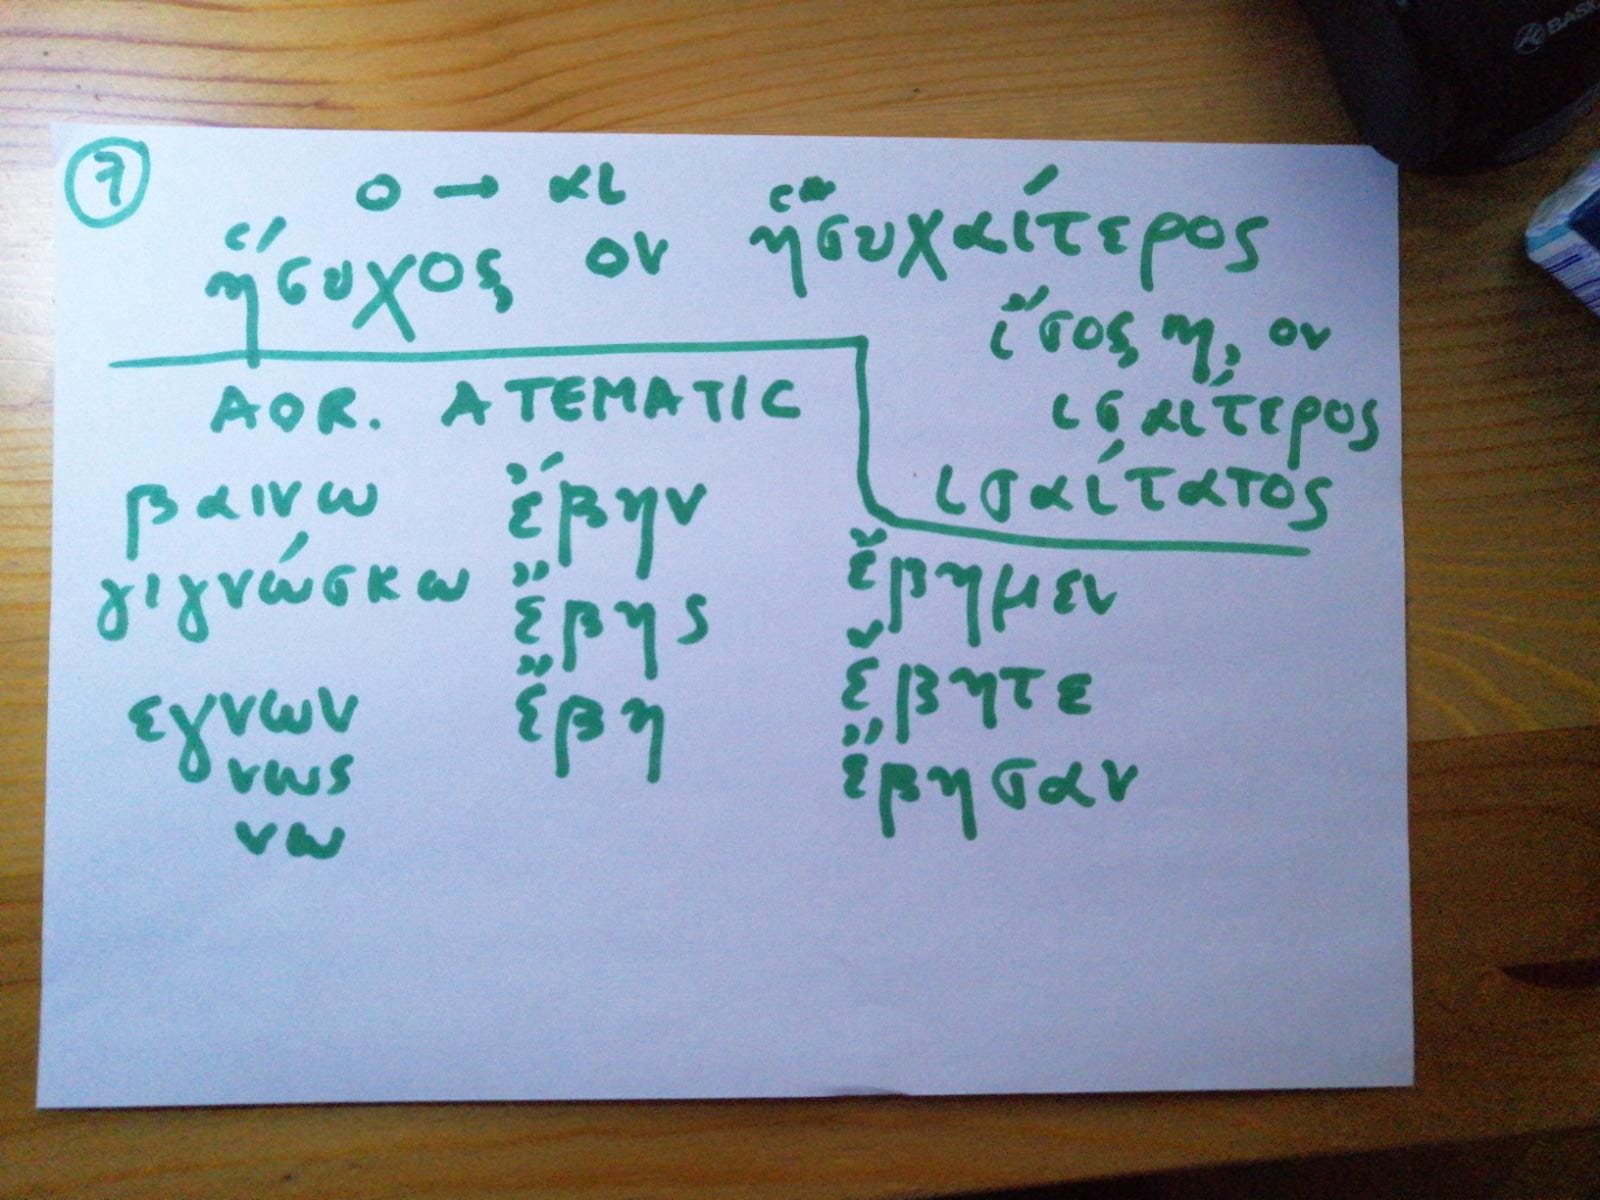 7
ο → αι
ἥσυχος ον ἡσυχαίτερος
ἴσος η, ον
ισαίτερος
ισαίτατος
AOR. ATEMATIC
βαινω ἔβην
γιγνώσκω ἔβης
ἔβη
εγνων
νως
νω
ἔβημεν
ἔβητε
ἔβησαν
BASIC